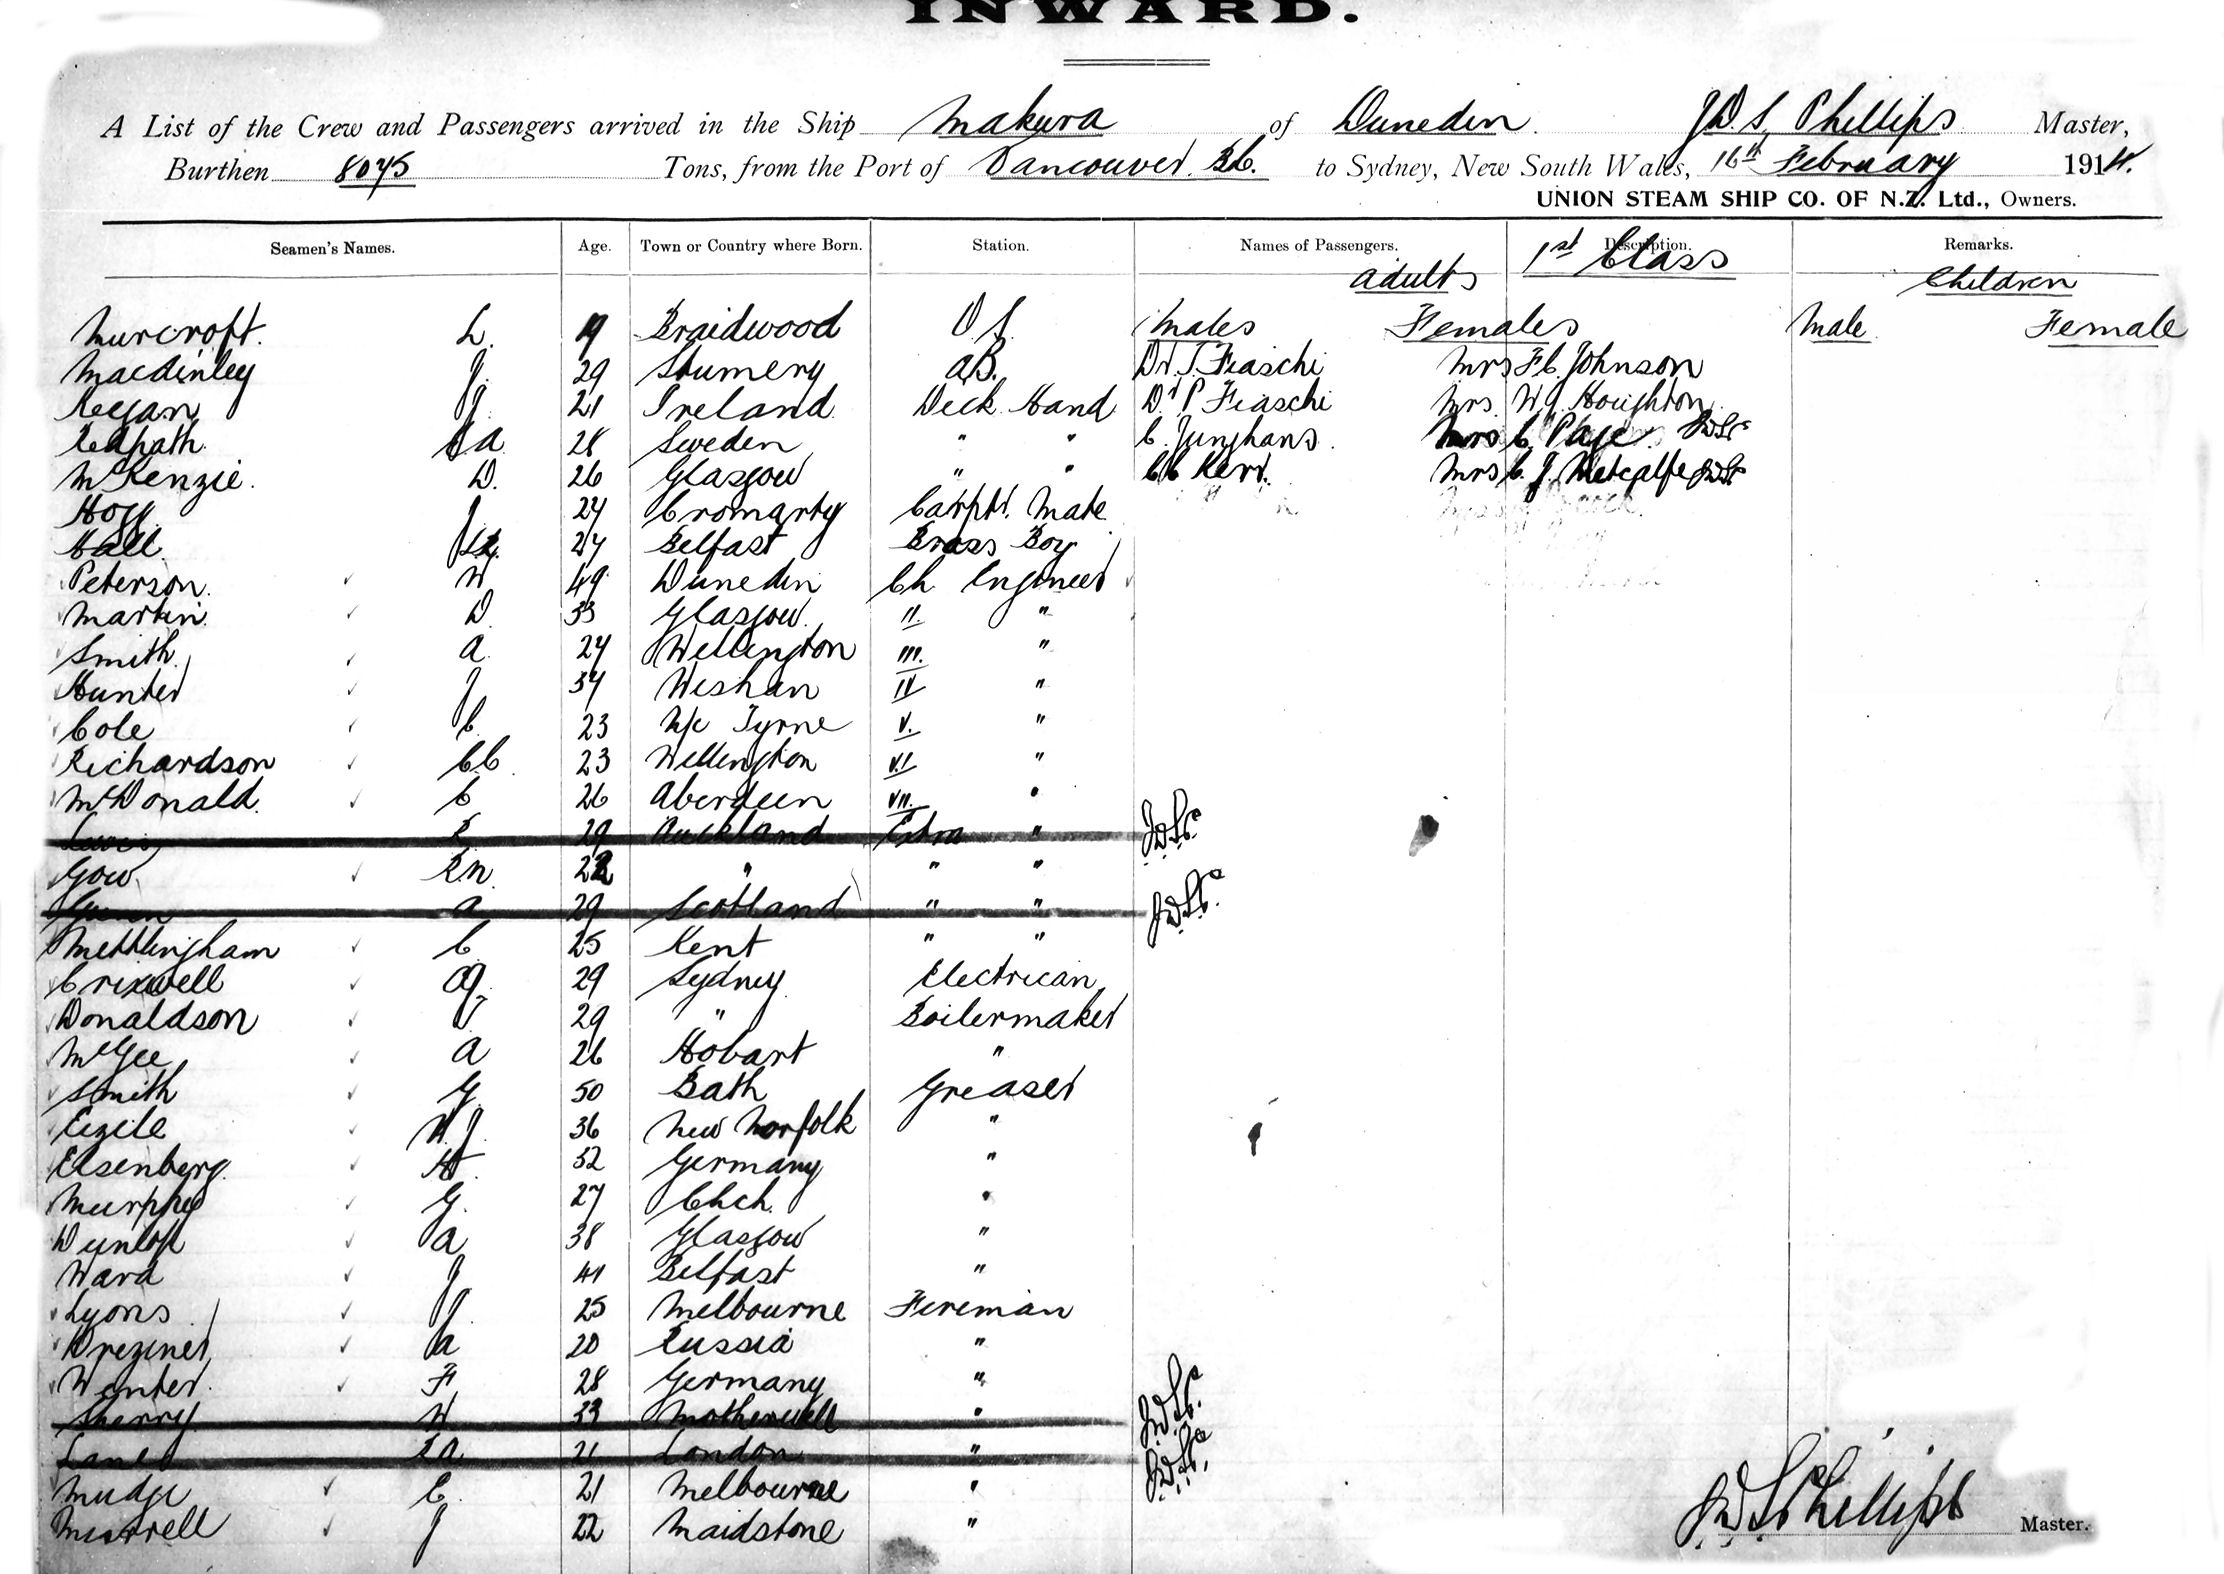 INWARD.
A List of the Crew and Passengers arrived in the Ship Makura of Dunedin. J.D.S. Phillips Master,
Burthen 8075 Tons, from the Port of Vancouver. B.C. to Sydney, New South Wales, 16th February 1914.
UNION STEAM SHIP CO. OF N.Z. Ltd., Owners.
Seamen's Names. Age. Town or Country where Born. Station. Names of Passengers. Description. Remarks.
Adults 1st Class Children
Murcroft. L. 19 Braidwood O S. Males Females Male Female
J. 29 A.B. Dr. T. Fiaschi Mrs F C. Johnson
Regan J. 21 Ireland Deck Hand Dr P Fiaschi Mrs. W J. Houghton
Redpath. 28 Sweden " " C. Junghans. Mrs C Page. JDSP
McKenzie. D. 26 Glasgow " " CC Kerr. Mrs C. J. Metcalfe JDSP
Hogg J. 24 Cromarty Carptr. Mate
Hall 24 Belfast Brass Boy
Peterson. W 49 Dunedin Ch Engineer
Martin. D. 33 Glasgow. II. "
Smith. A. 24 Wellington III. "
Hunter J 34 Wishaw IV "
Cole C. 23 N/c Tyne V. "
Richardson CC. 23 Wellington VI "
McDonald. C 26 Aberdeen VII. "
Lewis R 29 Auckland Extra " JDSP.
Gow R.N. " " "
A 29 Scotland " " JDSP.
Mettlingham C. 25 Kent " "
Crixwell 29 Sydney Electrican
Donaldson J. 29 " Boilermaker
McGee A 26 Hobart "
Smith G. 50 Bath Greaser
W J. 36 New Norfolk "
Eisenberg. H. 32 Germany "
Murphy G. 27 Chch. "
Dunlop A 38 Glasgow "
Ward J 41 Belfast "
Lyons J. 25 Melbourne Fireman
Dreziner A 20 Russia "
Winter. F 28 Germany "
Sherry W 33 Motherwell " JDSP.
Lane RA 21 London " JDSP.
Mudge E. 21 Melbourne "
Murrell J 22 Maidstone "
J.D.S. Phillips Master.